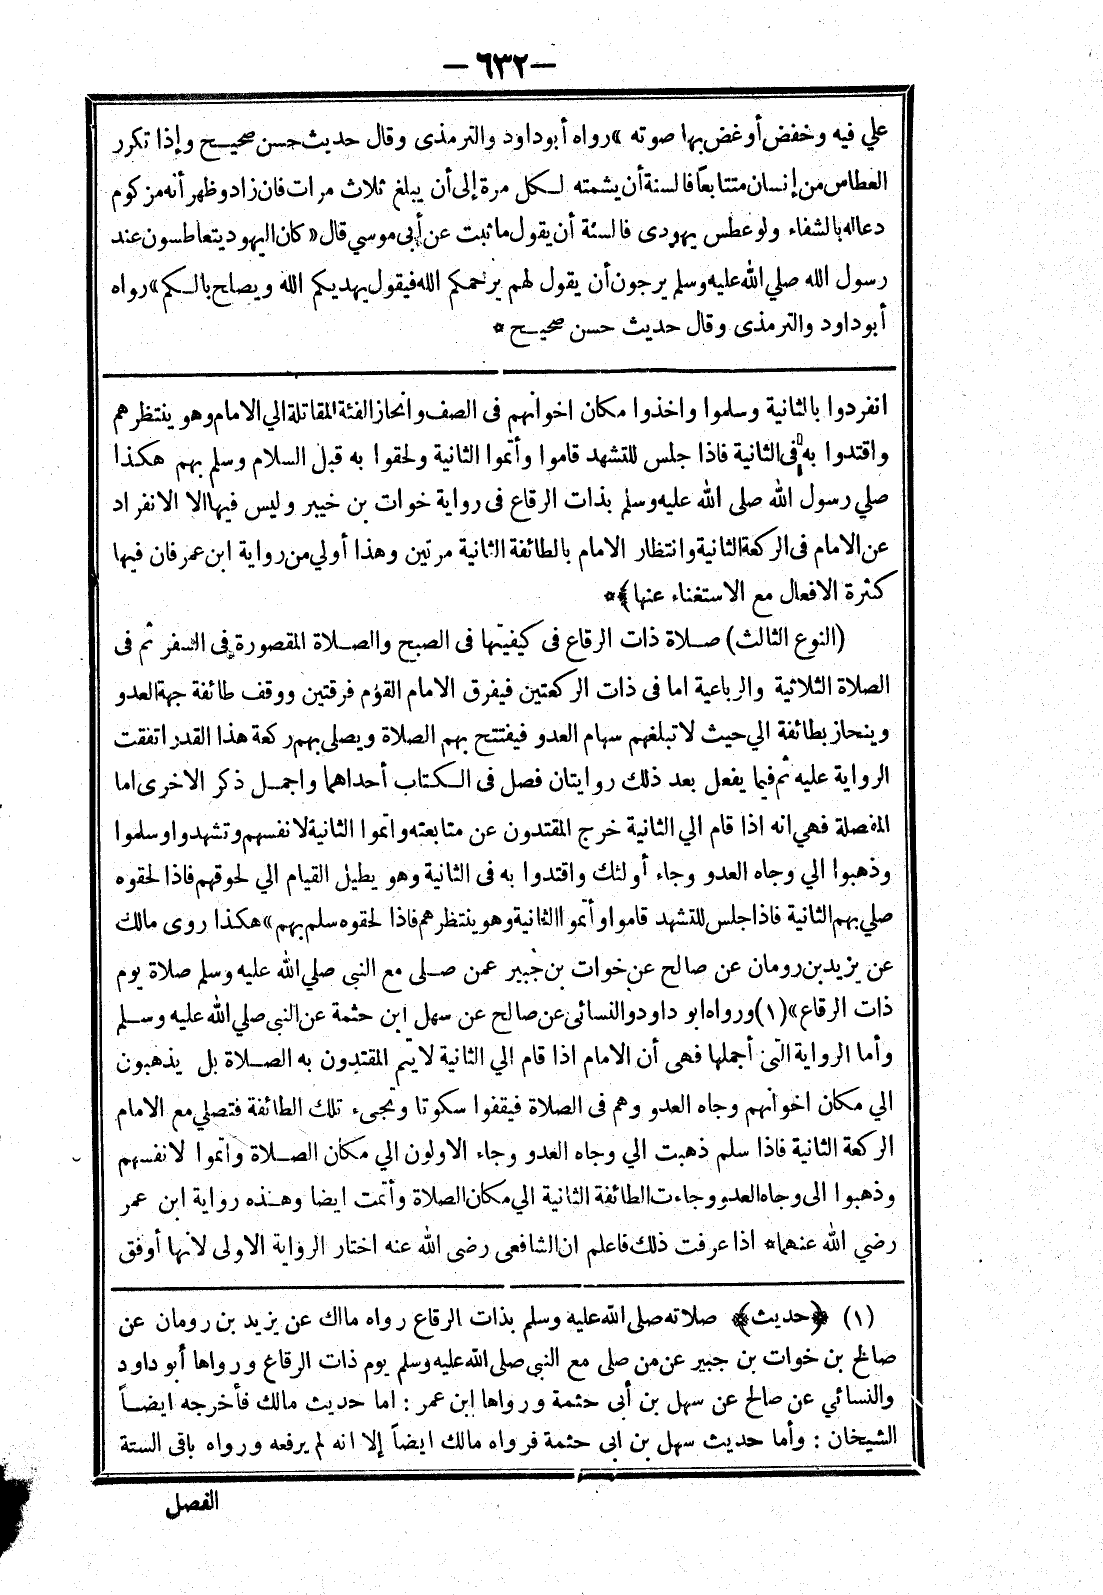 -٦٣٢-
علي فيه وخفض أو غض بها صوته» رواه أبو داود والترمذى وقال حديث حسن صحيح وإذا تكرر
العطاس من إنسان متتابعاً فالسنة أن يشمته لكل مرة إلى أن يبلغ ثلاث مرات فان زاد وظهر أنه مزكوم
دعاله بالشفاء ولو عطس يهودى فالسنة أن يقول ما ثبت عن أبى موسي قال «كان اليهود يتعاطسون عند
رسول الله صلي الله عليه وسلم يرجون أن يقول لهم يرحمكم الله فيقول يهديكم الله ويصلح بالكم» رواه
أبو داود والترمذى وقال حديث حسن صحيح *
انفردوا بالثانية وسلموا واخذوا مكان اخوانهم فى الصف وانحاز الفئة المقاتلة الي الامام وهو ينتظرهم
واقتدوا به فى الثانية فاذا جلس للتشهد قاموا وأتموا الثانية ولحقوا به قبل السلام وسلم بهم هكذا
صلي رسول الله صلى الله عليه وسلم بذات الرقاع فى رواية خوات بن خيبر وليس فيها الا الانفراد
عن الامام فى الركعة الثانية وانتظار الامام بالطائفة الثانية مرتين وهذا أولي من رواية ابن عمر فان فيها
كثرة الافعال مع الاستغناء عنها﴾*
(النوع الثالث) صلاة ذات الرقاع فى كيفيتها فى الصبح والصلاة المقصورة فى السفر ثم فى
الصلاة الثلاثية والرباعية اما فى ذات الركعتين فيفرق الامام القوم فرقتين ووقف طائفة جهة العدو
وينحاز بطائفة الي حيث لا تبلغهم سهام العدو فيفتتح بهم الصلاة ويصلى بهم ركعة هذا القدر اتفقت
الرواية عليه ثم فيما يفعل بعد ذلك روايتان فصل فى الكتاب أحداهما واجمل ذكر الاخرى اما
المفصلة فهي انه اذا قام الي الثانية خرج المقتدون عن متابعته واتموا الثانية لانفسهم وتشهدوا وسلموا
وذهبوا الي وجاه العدو وجاء أولئك واقتدوا به فى الثانية وهو يطيل القيام الي لحوقهم فاذا لحقوه
صلي بهم الثانية فاذا جلس للتشهد قاموا وأتموا الثانية وهو ينتظرهم فاذا لحقوه سلم بهم» هكذا روى مالك
عن يزيد بن رومان عن صالح عن خوات بن جبير عمن صلى مع النبى صلي الله عليه وسلم صلاة يوم
ذات الرقاع» (١) ورواه ابو داود والنسائى عن صالح عن سهل ابن حثمة عن النبي صلي الله عليه وسلم
وأما الرواية التى أجملها فهى أن الامام اذا قام الي الثانية لا يتم المقتدون به الصلاة بل يذهبون
الي مكان اخوانهم وجاه العدو وهم فى الصلاة فيقفوا سكوتا وتجىء تلك الطائفة فتصلي مع الامام
الركعة الثانية فاذا سلم ذهبت الي وجاه العدو وجاء الاولون الي مكان الصلاة واتموا لانفسهم
وذهبوا الى وجاه العدو وجاءت الطائفة الثانية الي مكان الصلاة وأتمت ايضا وهذه رواية ابن عمر
رضي الله عنهما* اذا عرفت ذلك فاعلم ان الشافعى رضى الله عنه اختار الرواية الاولى لانها أوفق
(١) ﴿حديث﴾ صلاته صلى الله عليه وسلم بذات الرقاع رواه مالك عن يزيد بن رومان عن
صالح بن خوات بن جبير عن من صلى مع النبي صلى الله عليه وسلم يوم ذات الرقاع ورواها أبو داود
والنسائي عن صالح عن سهل بن أبى حثمة ورواها ابن عمر : اما حديث مالك فأخرجه ايضاً
الشيخان : وأما حديث سهل بن ابى حثمة فرواه مالك ايضاً إلا انه لم يرفعه ورواه باقى الستة
الفصل